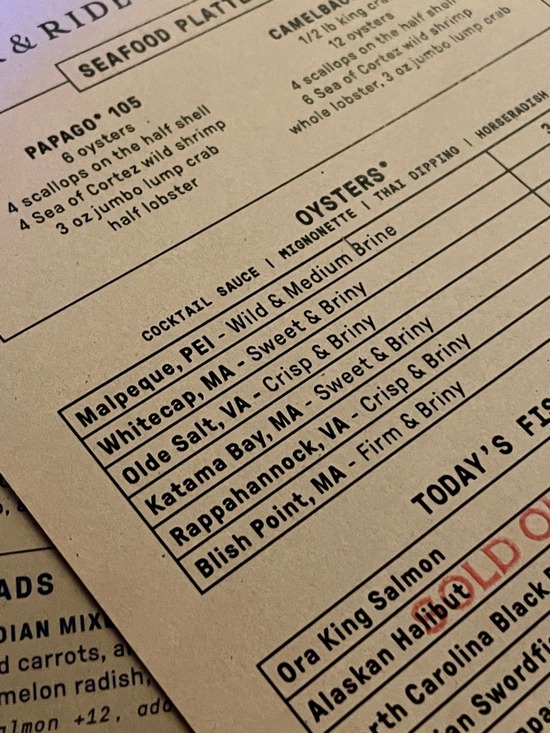 & RIDE
SEAFOOD PLATTE
PAPAGO* 105
6 oysters
4 scallops on the half shell
4 Sea of Cortez wild shrimp
3 oz jumbo lump crab
half lobster
CAMELBA
1/2 lb king cra
12 oysters
4 scallops on the half shell
6 Sea of Cortez wild shrimp
whole lobster, 3 oz jumbo lump crab
OYSTERS*
COCKTAIL SAUCE | MIGNONETTE | THAI DIPPING | HORSERADISH
Malpeque, PEI - Wild & Medium Brine
Whitecap, MA - Sweet & Briny
Olde Salt, VA - Crisp & Briny
Katama Bay, MA - Sweet & Briny
Rappahannock, VA - Crisp & Briny
Blish Point, MA - Firm & Briny
TODAY'S FIS
Ora King Salmon
SOLD O
Alaskan Halibut
rth Carolina Black
an Swordfi
ADS
DIAN MIX
d carrots, a
melon radish,
almon +12, add